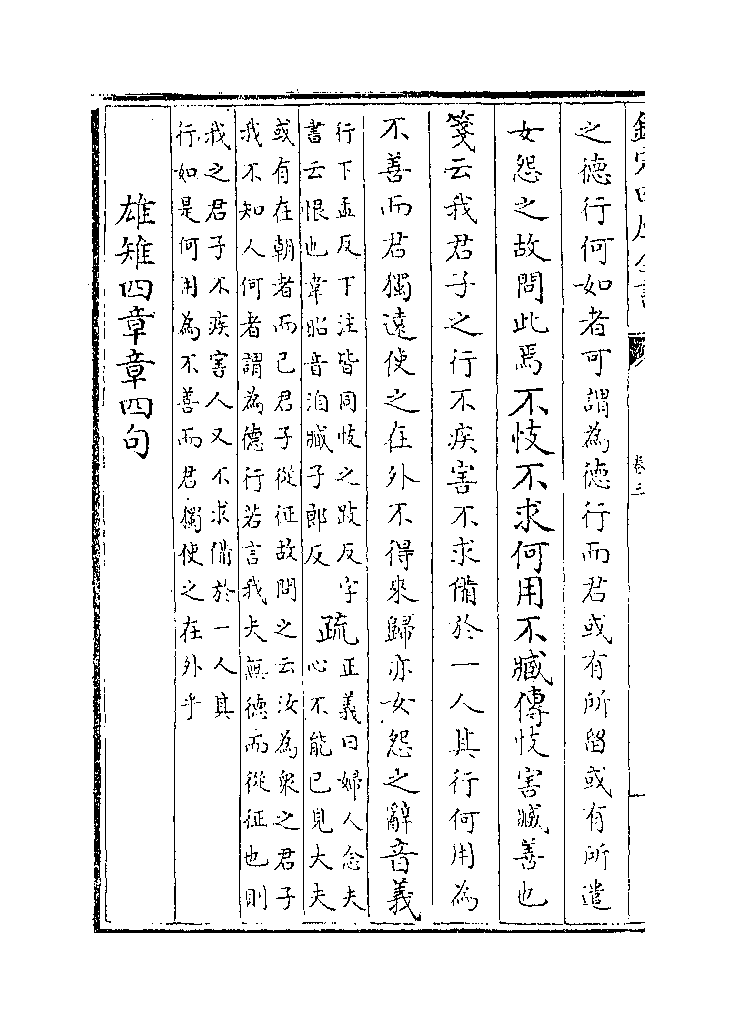 欽定四庫全書
卷三
之德行何如者可謂為德行而君或有所留或有所遣
女怨之故問此焉不忮不求何用不臧傳忮害臧善也
箋云我君子之行不疾害不求備於一人其行何用為
不善而君獨遠使之在外不得來歸亦女怨之辭音義
行下孟反下注皆同忮之跂反字
書云恨也韋昭音洎臧子郎反
疏
正義曰婦人念夫
心不能已見大夫
或有在朝者而己君子從征故問之云汝為衆之君子
我不知人何者謂為德行若言我夫無德而從征也則
我之君子不疾害人又不求備於一人其
行如是何用為不善而君獨使之在外乎
雄雉四章章四句